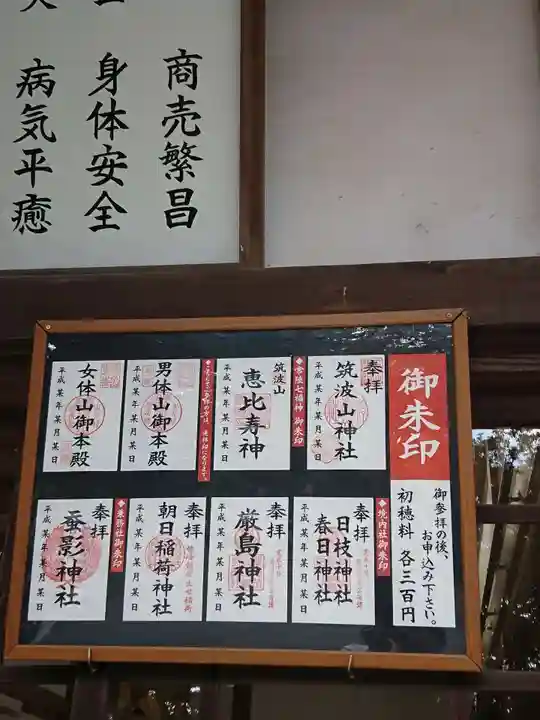 商売繁昌
身体安全
病気平癒
御朱印
御参拝の後、
お申込み下さい。
初穂料 各三百円
奉拝
筑波山神社
平成 某年 某月 某日
◆常陸七福神 御朱印
筑波山
恵比寿神
平成 某年 某月 某日
男体山御本殿
平成 某年 某月 某日
女体山御本殿
平成 某年 某月 某日
◆境内社御朱印
奉拝
日枝神社
春日神社
平成 某年 某月 某日
奉拝
厳島神社
平成 某年 某月 某日
奉拝
朝日稲荷神社
平成 某年 某月 某日
◆兼務社御朱印
奉拝
蚕影神社
平成 某年 某月 某日